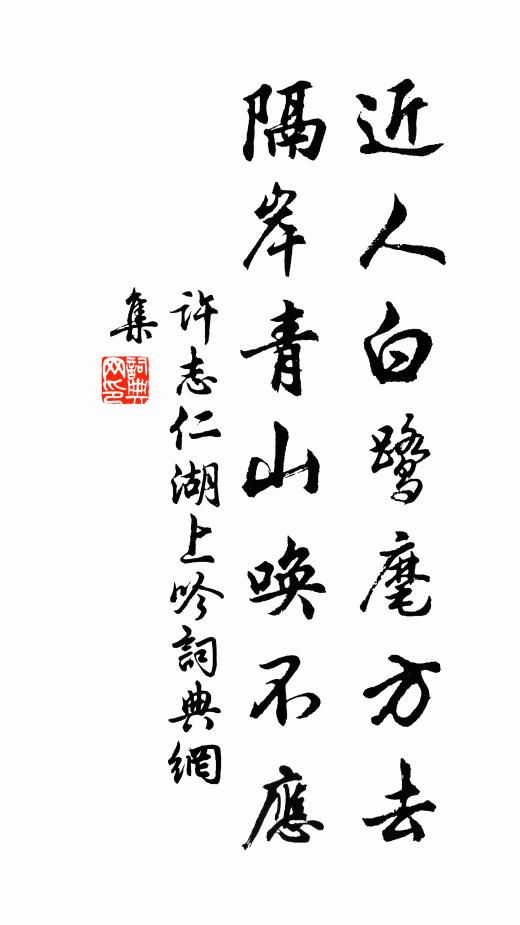 近人白鹭麾方去
隔岸青山唤不應
許志仁湖上吟詞典網
集
詞典網印